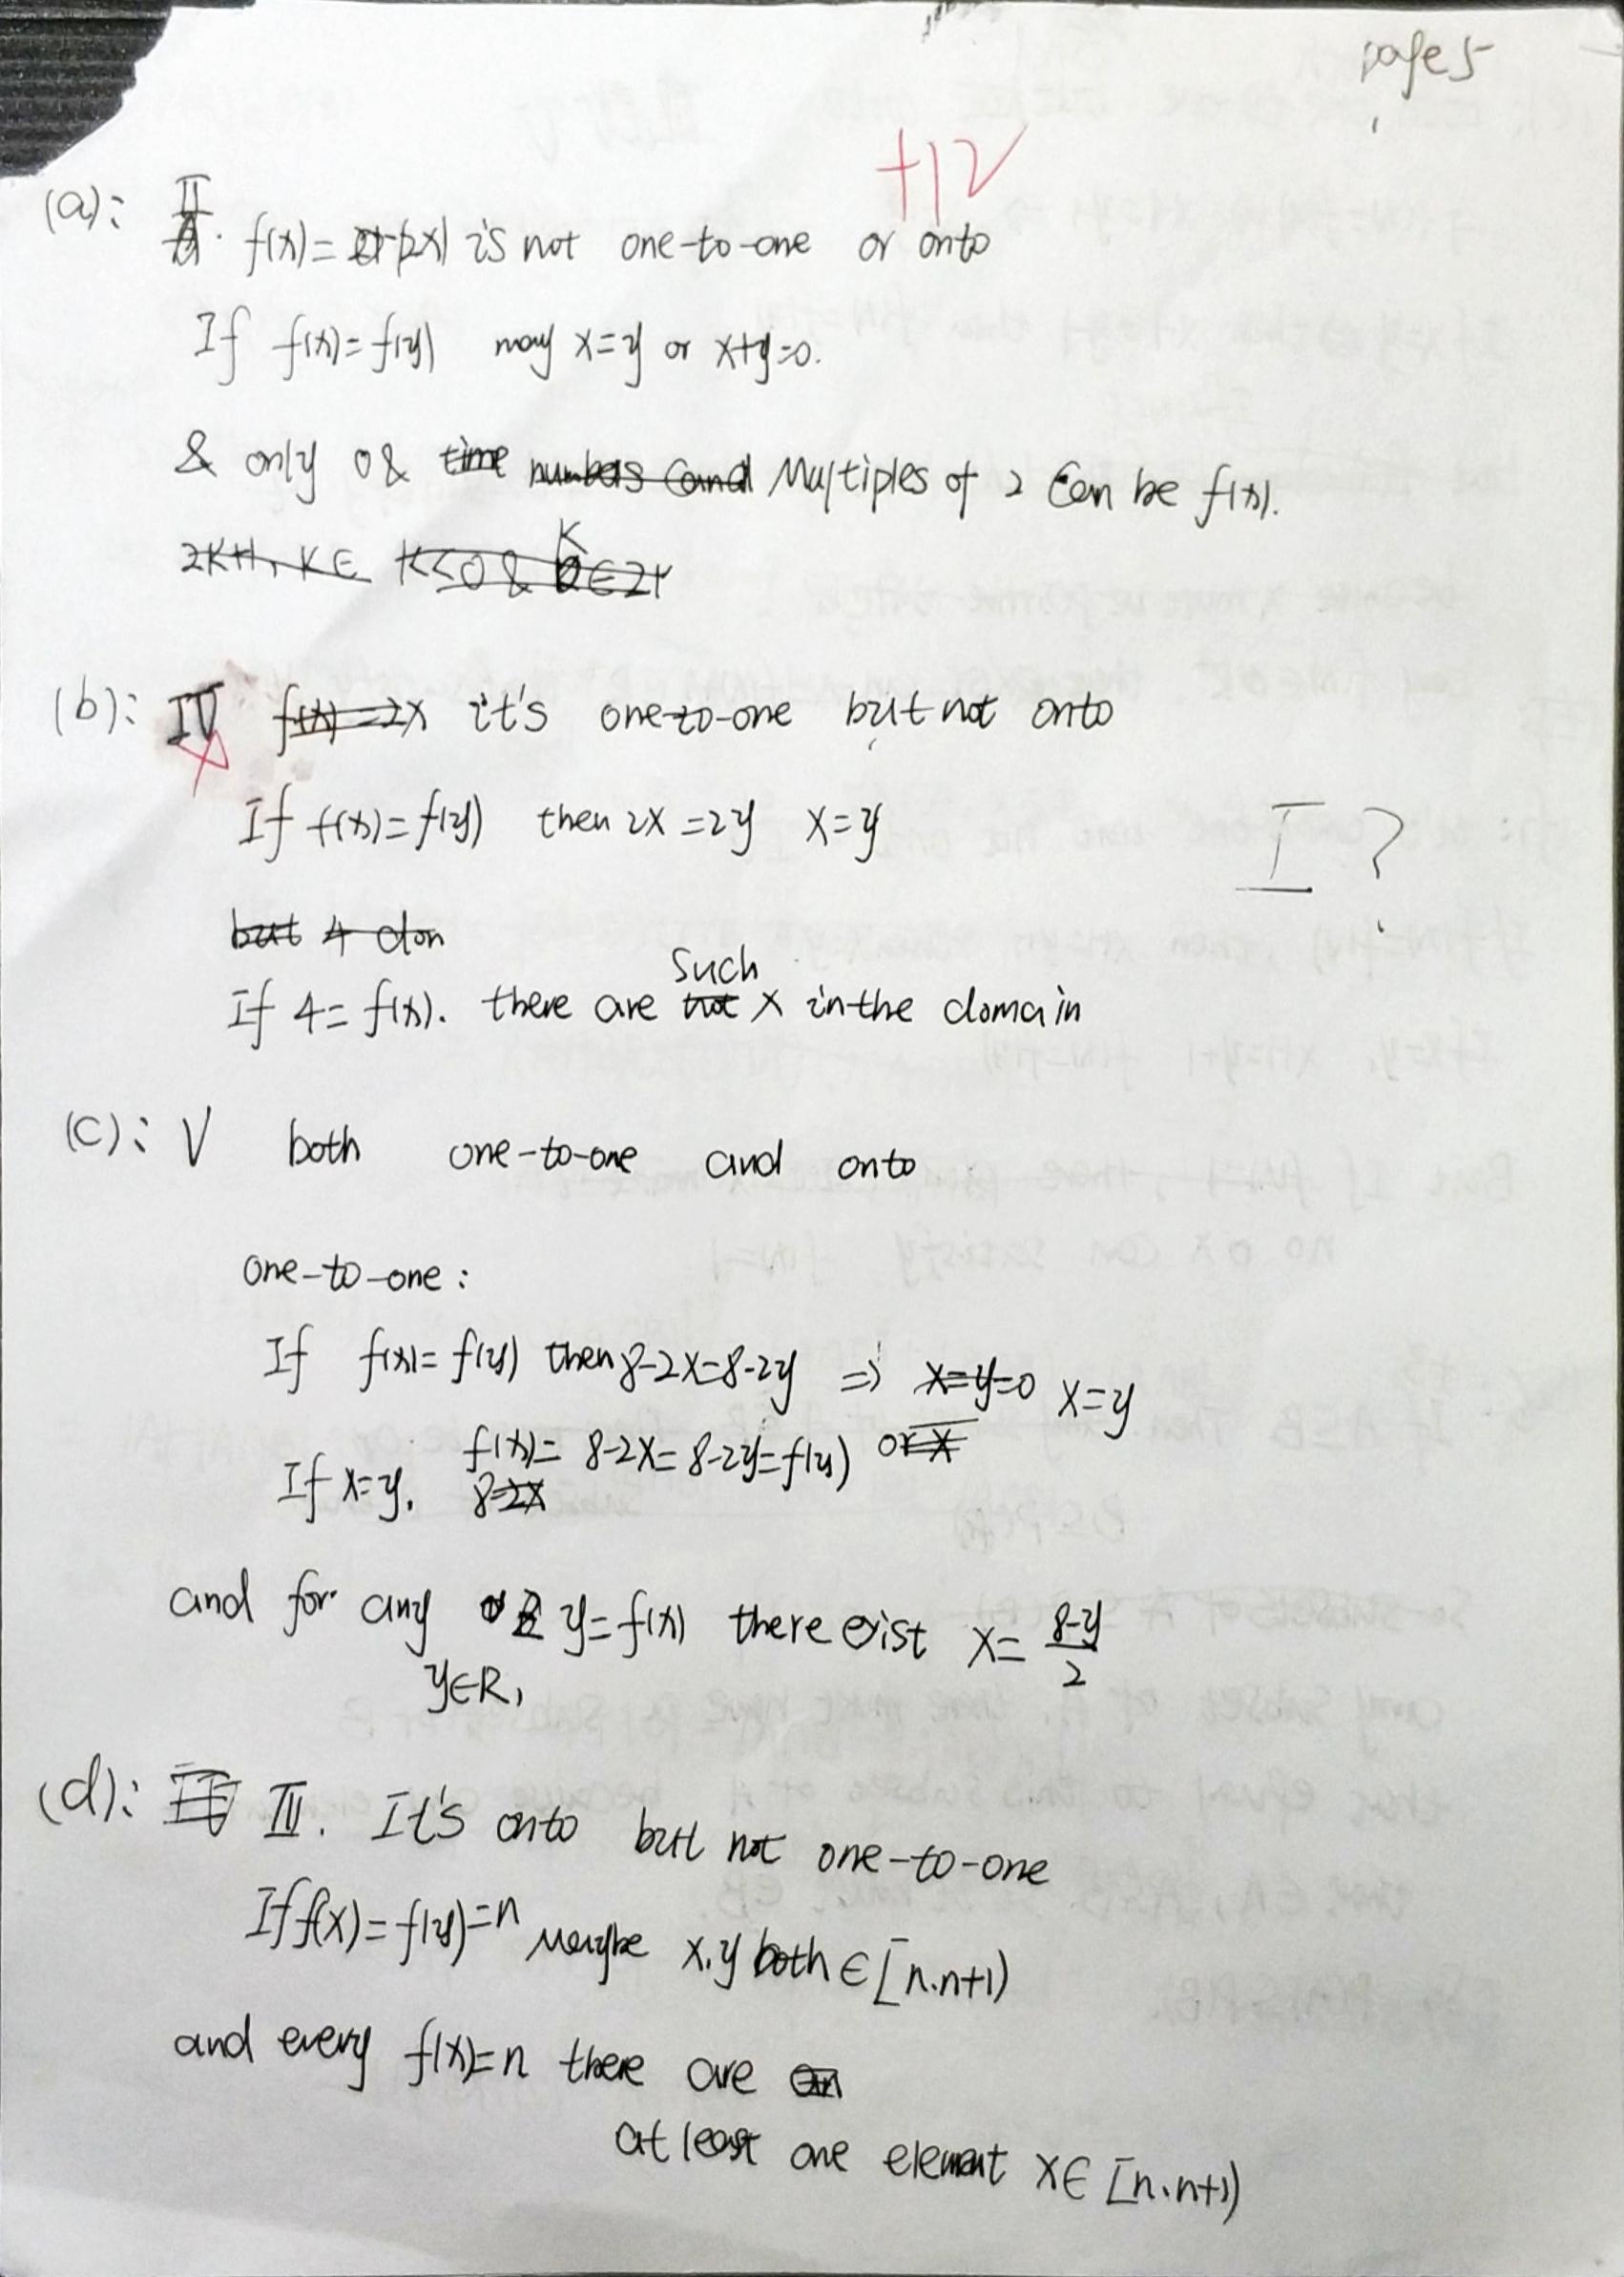 page 5
+12
(a): II. f(x)=|2x| is not one-to-one or onto
If f(x)=f(y) may x=y or x+y=0.
& only 0 & time numbers and Multiples of 2 can be f(x).
2K+1, K∈ K≤0 & K∈Z+
(b): IV f(x)=2x it's one-to-one but not onto
If f(x)=f(y) then 2x=2y x=y
I?
but 4 don
such
If 4=f(x). there are not x in the domain
(c): V both one-to-one and onto
one-to-one:
If f(x)=f(y) then 8-2x=8-2y => x=y=0 x=y
If x=y, f(x)=8-2x=8-2y=f(y) or x
8-2x
and for any y=f(x) there exist x=8-y/2
y∈R,
(d): III. It's onto but not one-to-one
If f(x)=f(y)=n Maybe x,y both ∈[n.n+1)
and every f(x)=n there are an
at least one element x∈[n.n+1)